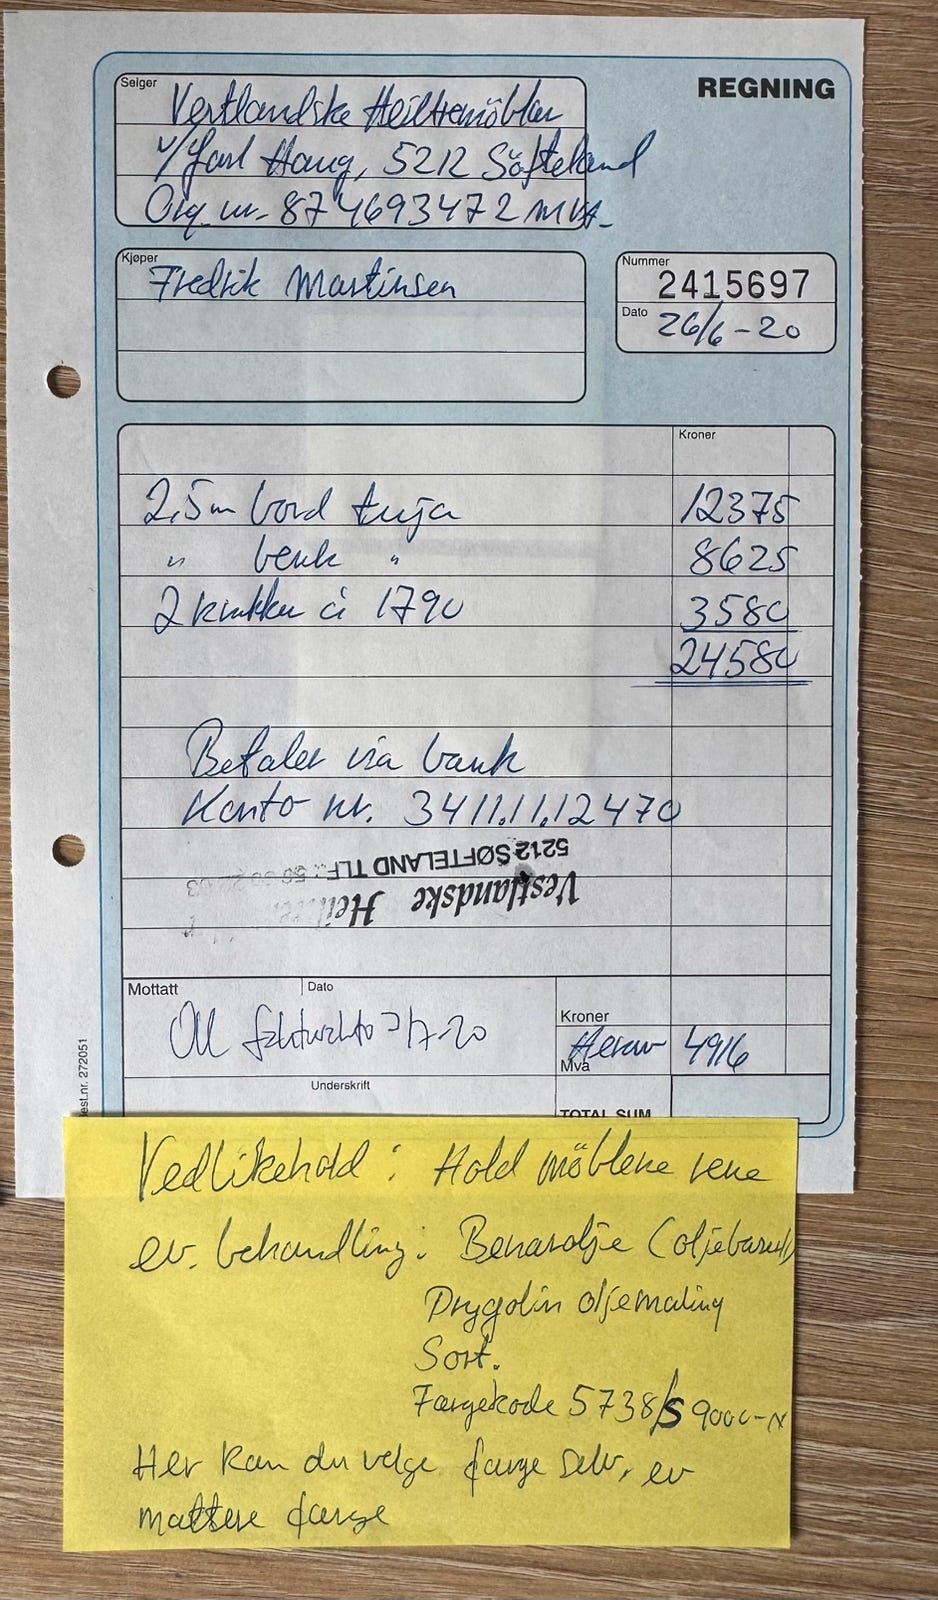 REGNING
Selger
Vestlandske Heiltremöbler
v/Jarl Haug, 5212 Söfteland
Org. nr. 874693472 MVA.
Kjøper
Fredrik Martinsen
Nummer
2415697
Dato
26/6-20
Kroner
2,5m bord tuja 12375
" benk " 8625
2 krakker á 1790 3580
24580
Betaler via bank
Konto nr. 3411.11.12470
5212 SØFTELAND TLF.: 56 30
Vestlandske Heiltre
Mottatt
Dato
3/7-20
Kroner
Herav 4916
Mva
Underskrift
TOTAL SUM
est.nr. 272051
Vedlikehold: Hold möblene rene
ev. behandling: Benarolje (oljebasert)
Drygolin oljemaling
Sort.
Fargekode 5738/S 9000-N
Her kan du velge farge selv, ev
mattere farge